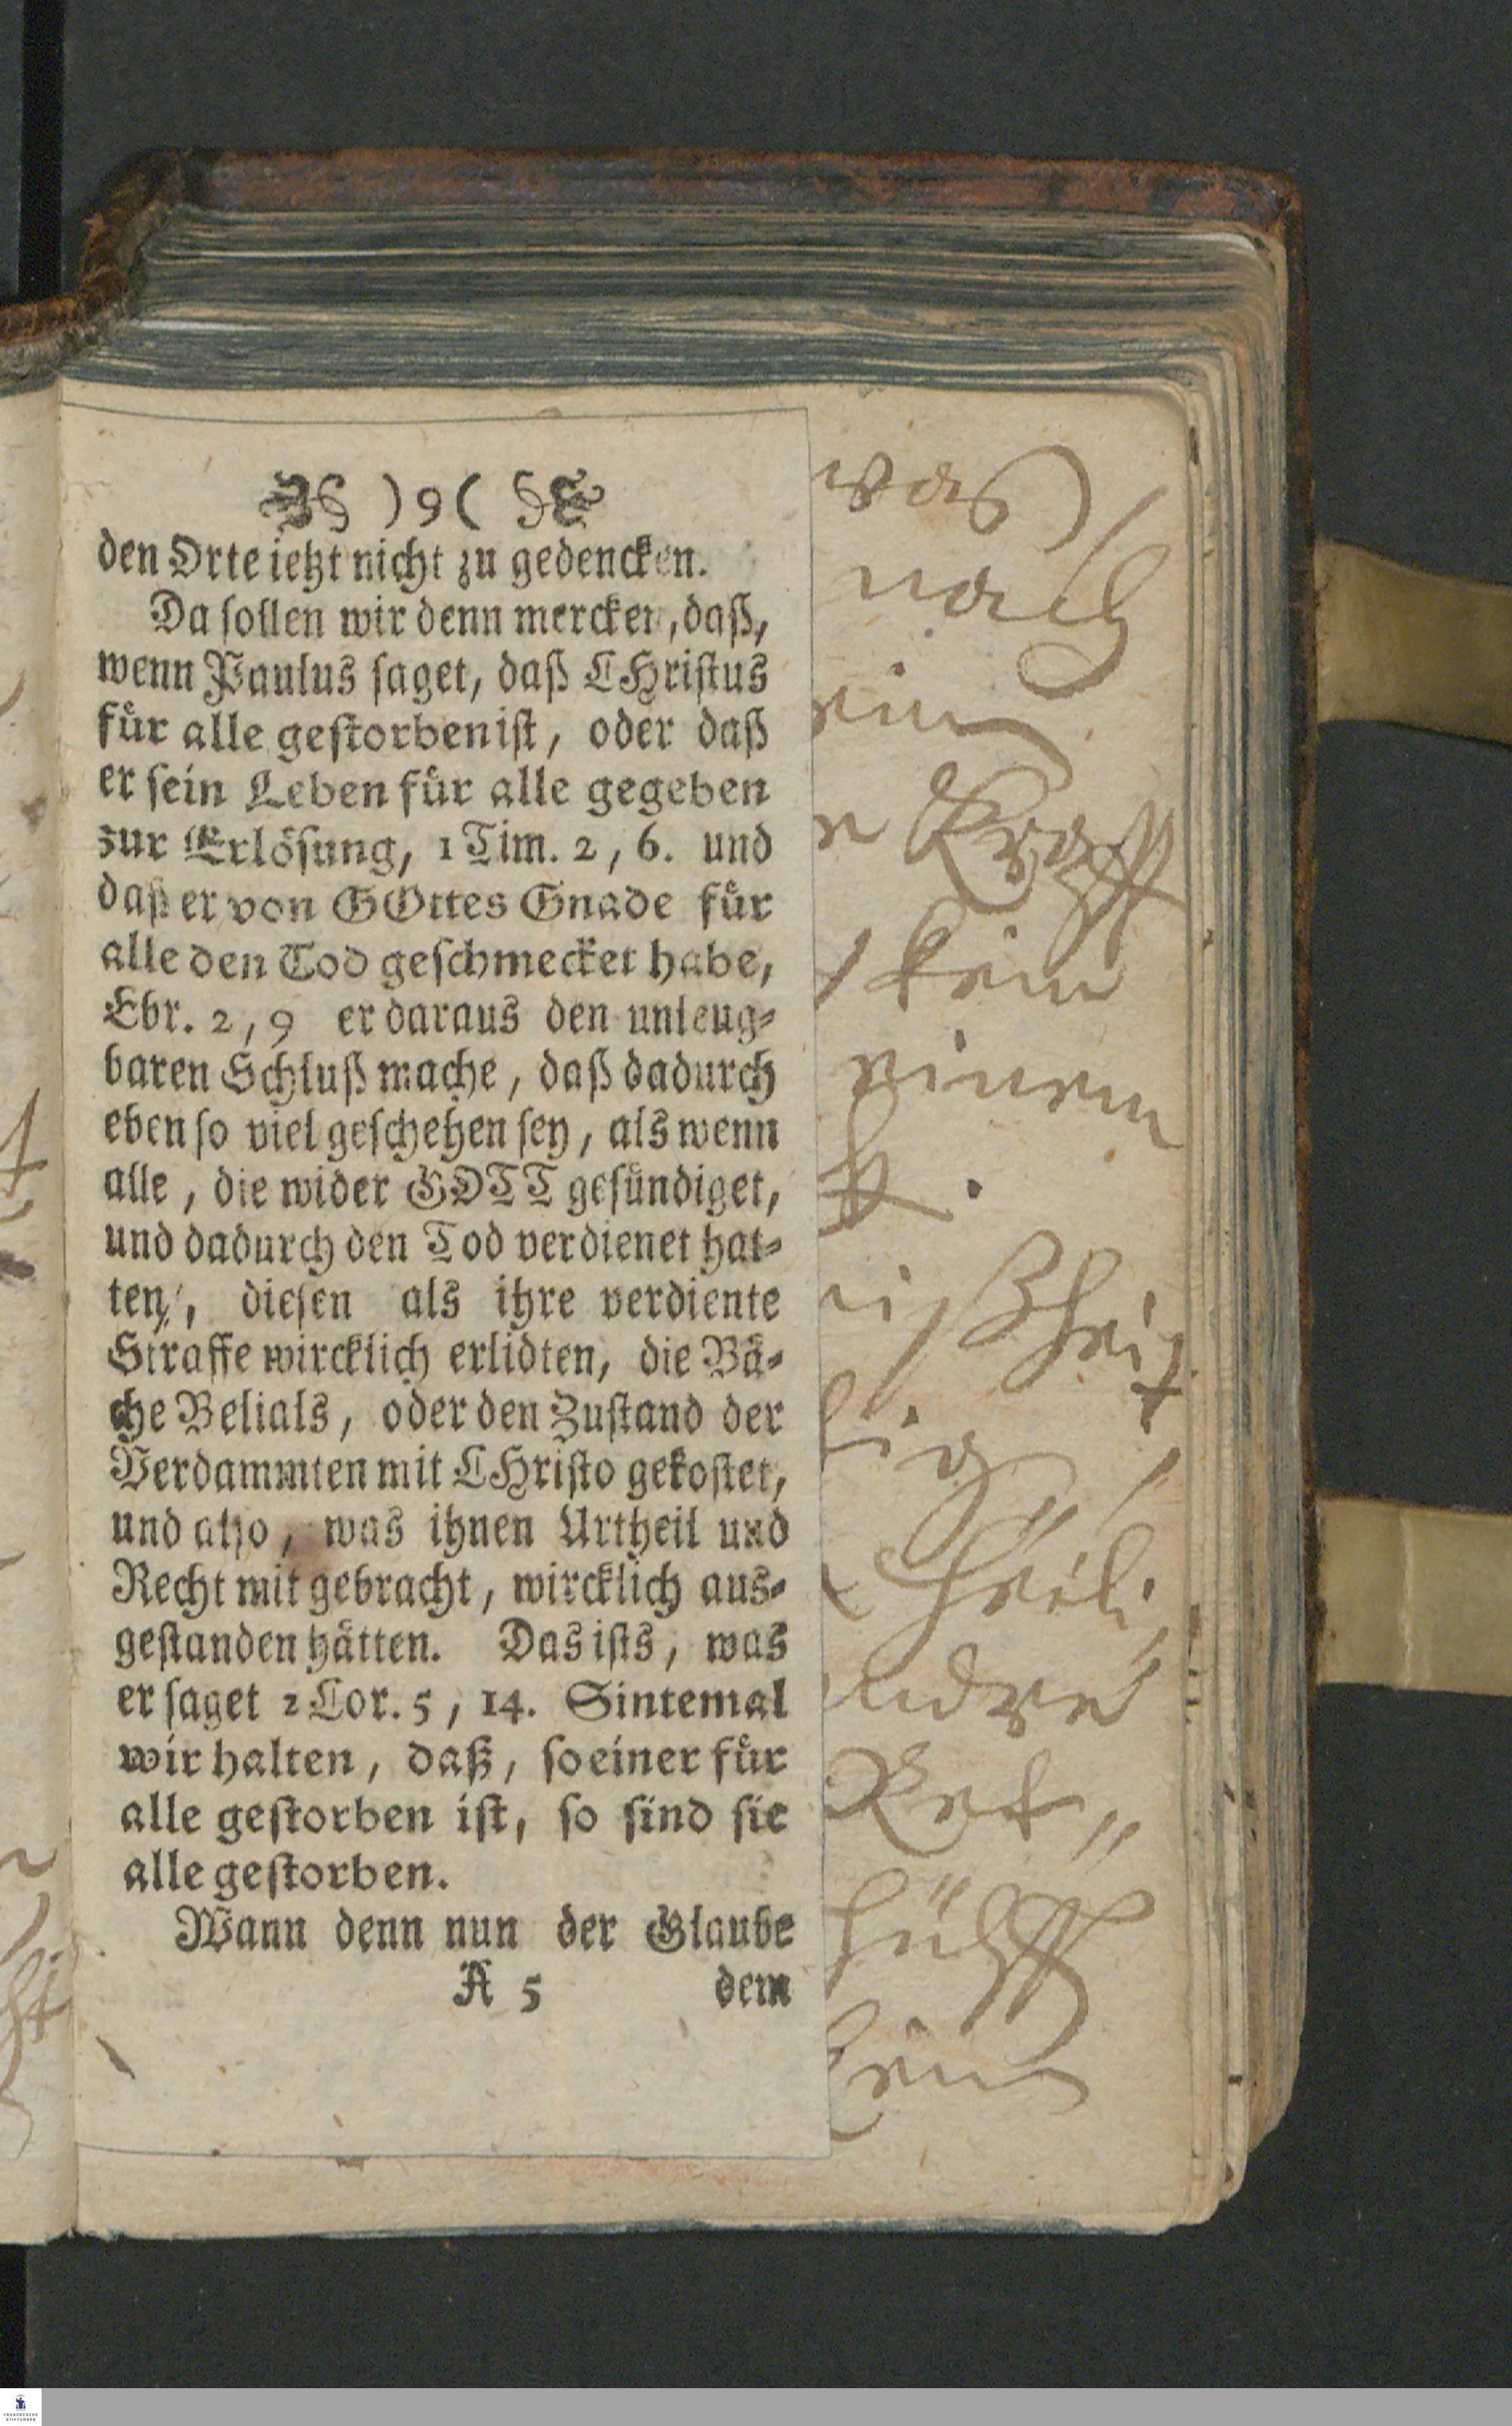 )9(
den Orte ietzt nicht zu gedencken.
Da sollen wir denn mercken, daß,
wenn Paulus saget, daß CHristus
für alle gestorben ist, oder daß
er sein Leben für alle gegeben
zur Erlösung, 1 Tim. 2, 6. und
daß er von GOttes Gnade für
alle den Tod geschmecket habe,
Ebr. 2, 9 er daraus den unleug⸗
baren Schluß mache, daß dadurch
eben so viel geschehen sey, als wenn
alle, die wider GOTT gesündiget,
und dadurch den Tod verdienet hat⸗
ten, diesen als ihre verdiente
Straffe wircklich erlidten, die Bä⸗
che Belials, oder den Zustand der
Verdammten mit CHristo gekostet,
und also, was ihnen Urtheil und
Recht mit gebracht, wircklich aus⸗
gestanden hätten. Das ists, was
er saget 2 Cor. 5, 14. Sintemal
wir halten, daß, so einer für
alle gestorben ist, so sind sie
alle gestorben.
Wann denn nun der Glaube
A 5 dem
was
nach
ein
Krafft
kein
einem